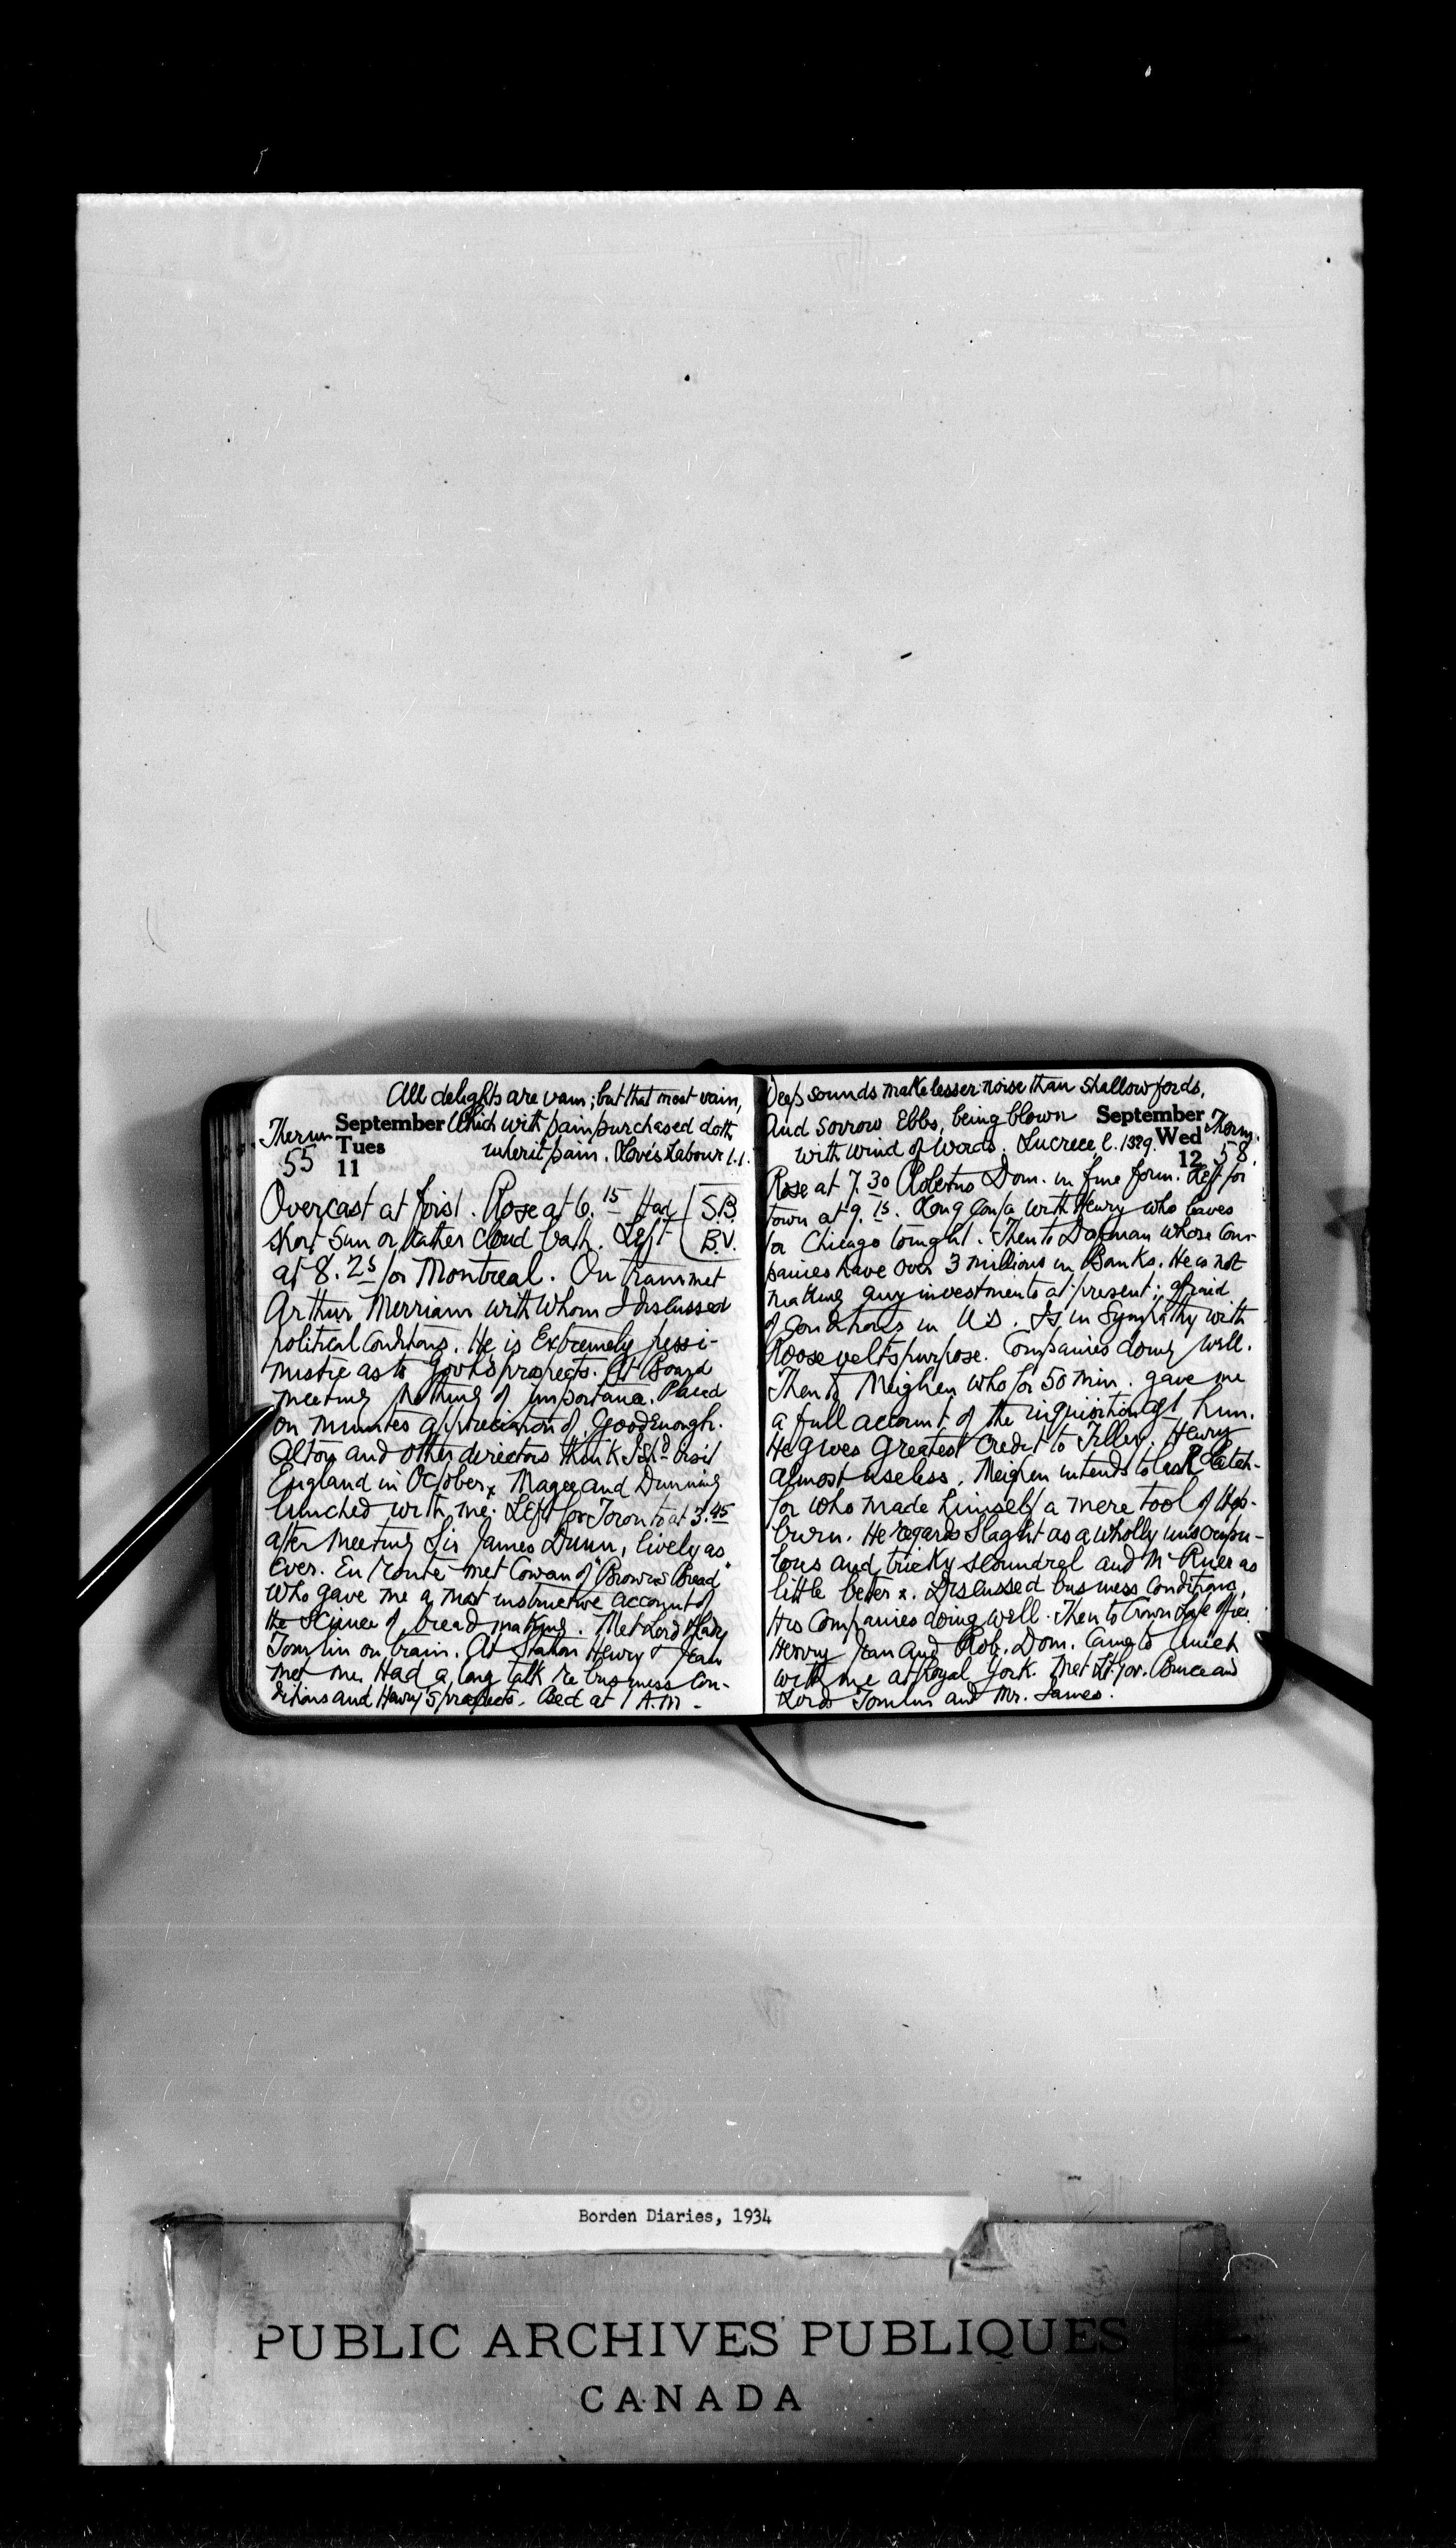 All delights are vain; but that most vain,
Which with pain purchased doth
inherit pain. Love's Labour 1.1.
Therm
55
September
Tues
11
Overcast at first. Rose at 6.15 Had
S.B.
B.V.
short sun or rather cloud bath. Left
at 8.25 for Montreal. On train met
Arthur Merriam with whom I discussed
political conditions. He is extremely pessi-
mistic as to Govt's prospects. At Board
meeting nothing of importance. Placed
on minutes appreciation of Goodenough.
and other directors think I shd visit
England in October. Magee and Dunning
lunched with me. Left for Toronto at 3.45
after meeting Sir James Dunn, lively as
ever. En route met Cowan of "Brown's Bread"
who gave me a most instructive account of
the science of bread making. Met Lord & Lady
Tomlin on train. At station Henry & Jean
met me. Had a long talk re business con-
ditions and Henry's prospects. Bed at 1 A.M.
Deep sounds make lesser noise than shallow fords,
And sorrow ebbs, being blown
with wind of words. Lucrece, l. 1329.
September
Wed
12
Therm.
58.
Rose at 7.30 Robertus Dom. in fine form. Left for
town at 9.15. Long confa with Henry who leaves
for Chicago tonight. Then to whose Com-
panies have over 3 millions in Banks. He is not
making any investments at present; afraid
of conditions in U.S. Is in sympathy with
Roosevelt's purpose. Companies doing well.
Then to Meighen who for 50 min. gave me
a full account of the inquisition agst him.
He gives greatest credit to Tilley. Henry
almost useless. Meighen intends to
for who made himself a mere tool of Hep-
burn. He regards Slaght as a wholly unscrupu-
lous and tricky scoundrel and McRuer as
little better. Discussed business conditions,
His Companies doing well. Then to Crown Life office.
Henry Jean and Rob. Dom. came to lunch
with me at Royal York. Met Lt. Gov. Bruce and
Lord Tomlin and Mr. James.
Borden Diaries, 1934
PUBLIC ARCHIVES PUBLIQUES
CANADA